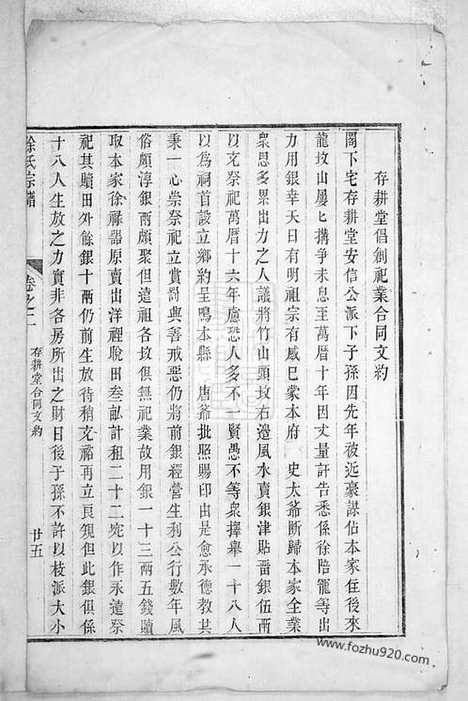 存耕堂倡創祀業合同文約
閣下宅存耕堂安信公派下子孫因先年被近豪謀佔本家住後來
龍坟山屢匕搆爭未息至萬曆十年因丈量計告悉係徐陪寵等出
力用銀幸天日有明祖宗有感巳蒙本府　史太爺斷歸本家全業
衆思多累出力之人議將竹山頭坟右邉風水賣銀津貼畱銀伍兩
以充祭祀萬曆十六年慮恐人多不一賢愚不等衆擇舉一十八人
以爲祠首設立鄉約呈鳴本縣　唐爺批照賜印由是愈承德教其
秉一心崇祭祀立賞罰與善戒惡仍將前銀經營生利公行數年風
俗頗淳銀兩頗聚但遠祖各坟俱無祀業故用銀一十三兩五錢贖
取本家徐祿器原賣出洋裡脫田叁畝計租二十二窕以作永遠祭
祀其贖田外餘銀十兩仍前生放待積充裕再立良規但此銀俱係
十八人生放之力實非各房所出之財日後子孫不許以枝派大小
徐氏宗譜
卷之一
存耕堂合同文約
廿五
www.fozhu920.com